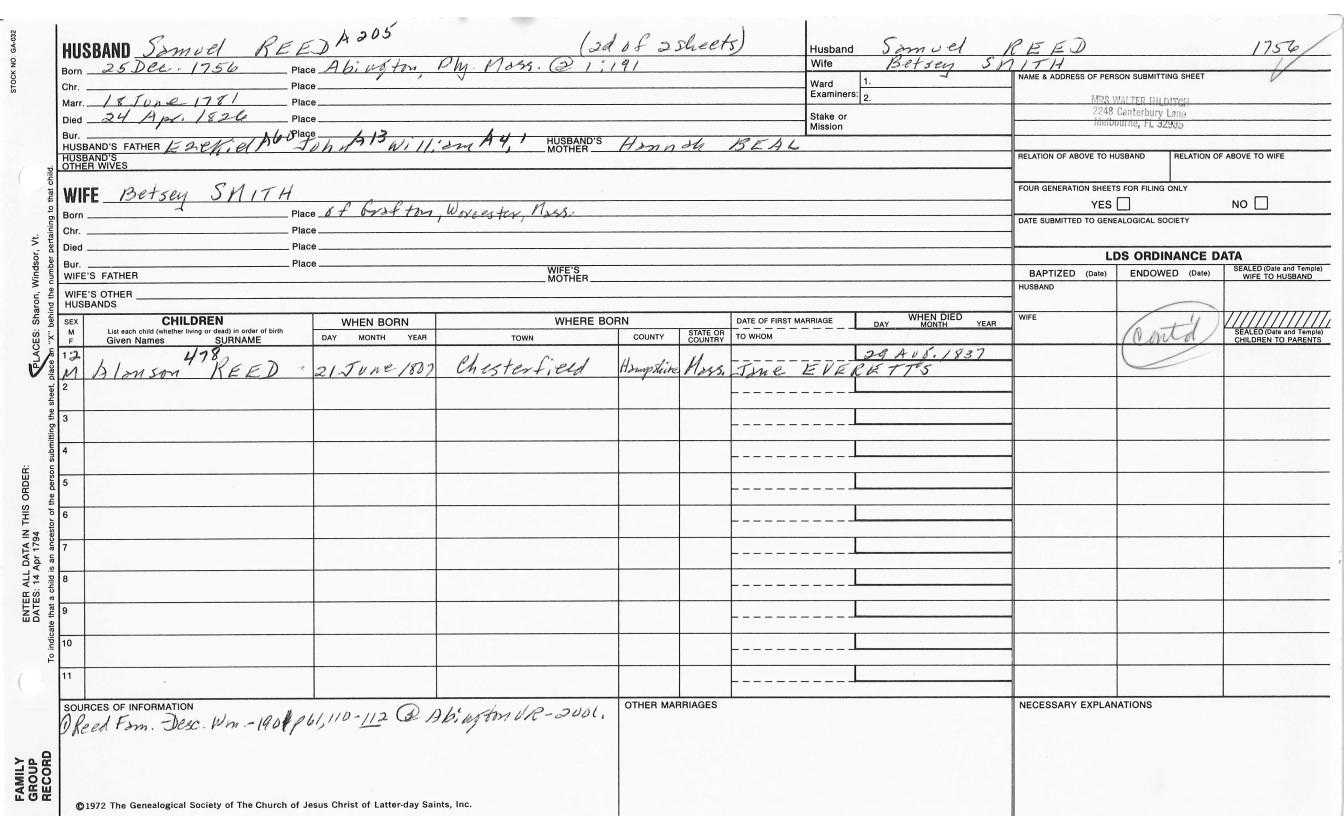 STOCK NO. GA-032
HUSBAND Samuel REED A205 (2d of 2 sheets)
Born 25 Dec. 1756 Place Abington, Ply. Mass. @ 1:191
Chr. Place
Marr. 18 June 1781 Place
Died 24 Apr. 1826 Place
Bur. Place
HUSBAND'S FATHER Ezekiel A68 John A13 William A4,1 HUSBAND'S MOTHER Hannah BEAL
HUSBAND'S OTHER WIVES
Husband Samuel REED 1756
Wife Betsey SMITH
Ward Examiners: 1.
2.
Stake or Mission
NAME & ADDRESS OF PERSON SUBMITTING SHEET
MRS WALTER HILDITCH
2248 Canterbury Lane
Melbourne, FL 32935
RELATION OF ABOVE TO HUSBAND RELATION OF ABOVE TO WIFE
FOUR GENERATION SHEETS FOR FILING ONLY
YES NO
DATE SUBMITTED TO GENEALOGICAL SOCIETY
WIFE Betsey SMITH
Born Place of Grafton, Worcester, Mass.
Chr. Place
Died Place
Bur. Place
WIFE'S FATHER WIFE'S MOTHER
WIFE'S OTHER HUSBANDS
LDS ORDINANCE DATA
BAPTIZED (Date) ENDOWED (Date) SEALED (Date and Temple) WIFE TO HUSBAND
HUSBAND
WIFE
cont'd
SEALED (Date and Temple) CHILDREN TO PARENTS
SEX M F
CHILDREN
List each child (whether living or dead) in order of birth
Given Names SURNAME
WHEN BORN
DAY MONTH YEAR
WHERE BORN
TOWN COUNTY STATE OR COUNTRY
DATE OF FIRST MARRIAGE
TO WHOM
WHEN DIED
DAY MONTH YEAR
12 478 29 Aug. 1837
M Alanson REED 21 June 1807 Chesterfield Hampshire Mass. Jane EVERETTS
2
3
4
5
6
7
8
9
10
11
SOURCES OF INFORMATION
① Reed Fam. Desc. Wm.-1901 p61, 110-112 ② Abington VR-2001.
OTHER MARRIAGES
NECESSARY EXPLANATIONS
©1972 The Genealogical Society of The Church of Jesus Christ of Latter-day Saints, Inc.
FAMILY GROUP RECORD
ENTER ALL DATA IN THIS ORDER:
DATES: 14 Apr 1794
PLACES: Sharon, Windsor, Vt.
To indicate that a child is an ancestor of the person submitting the sheet, place an "X" behind the number pertaining to that child.